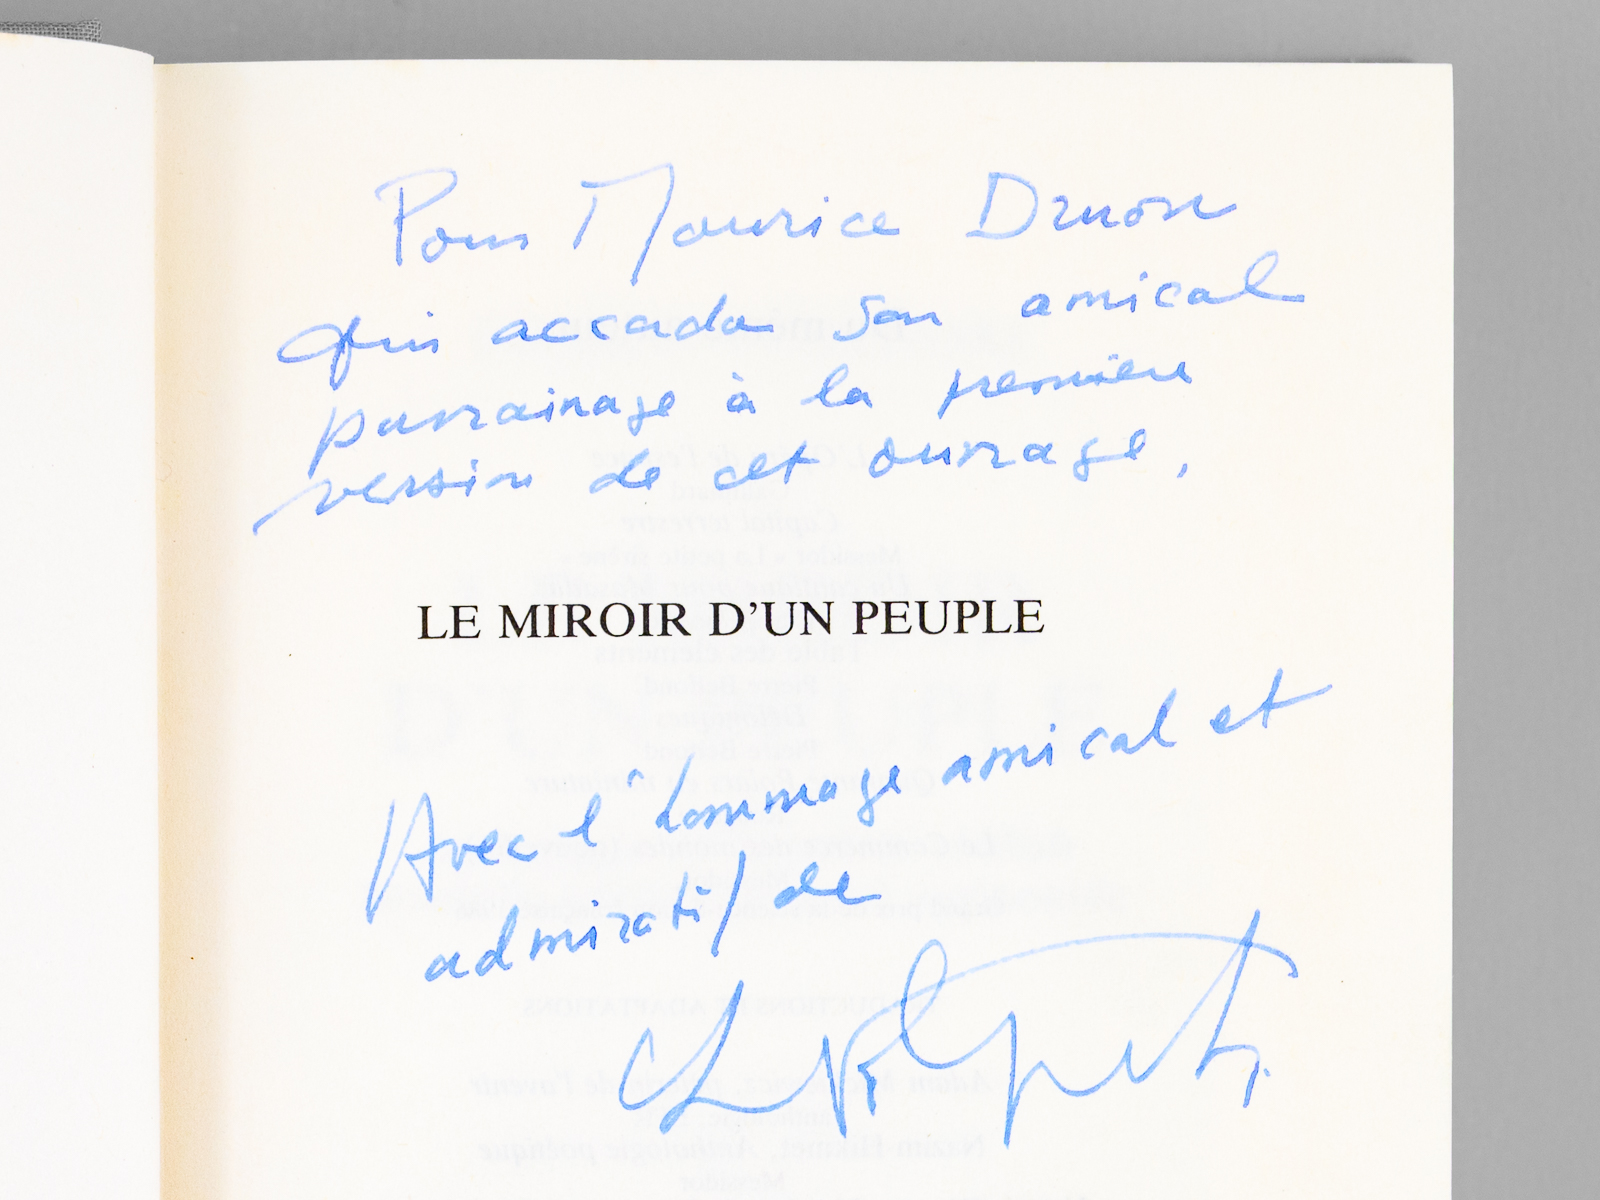 Pour Maurice Druon
qui accorda son amical
parrainage à la première
version de cet ouvrage,
LE MIROIR D'UN PEUPLE
Avec l'hommage amical et
admiratif de